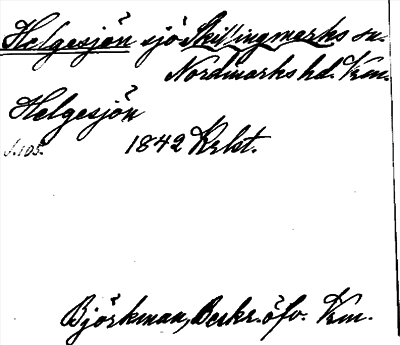 Helgesjön sjö Skillingmarks sn.
Nordmarks hd. Krm.
Helgesjön
s. 105. 1842 Krkt.
Björkman, Beskr. öfv. Vrm.